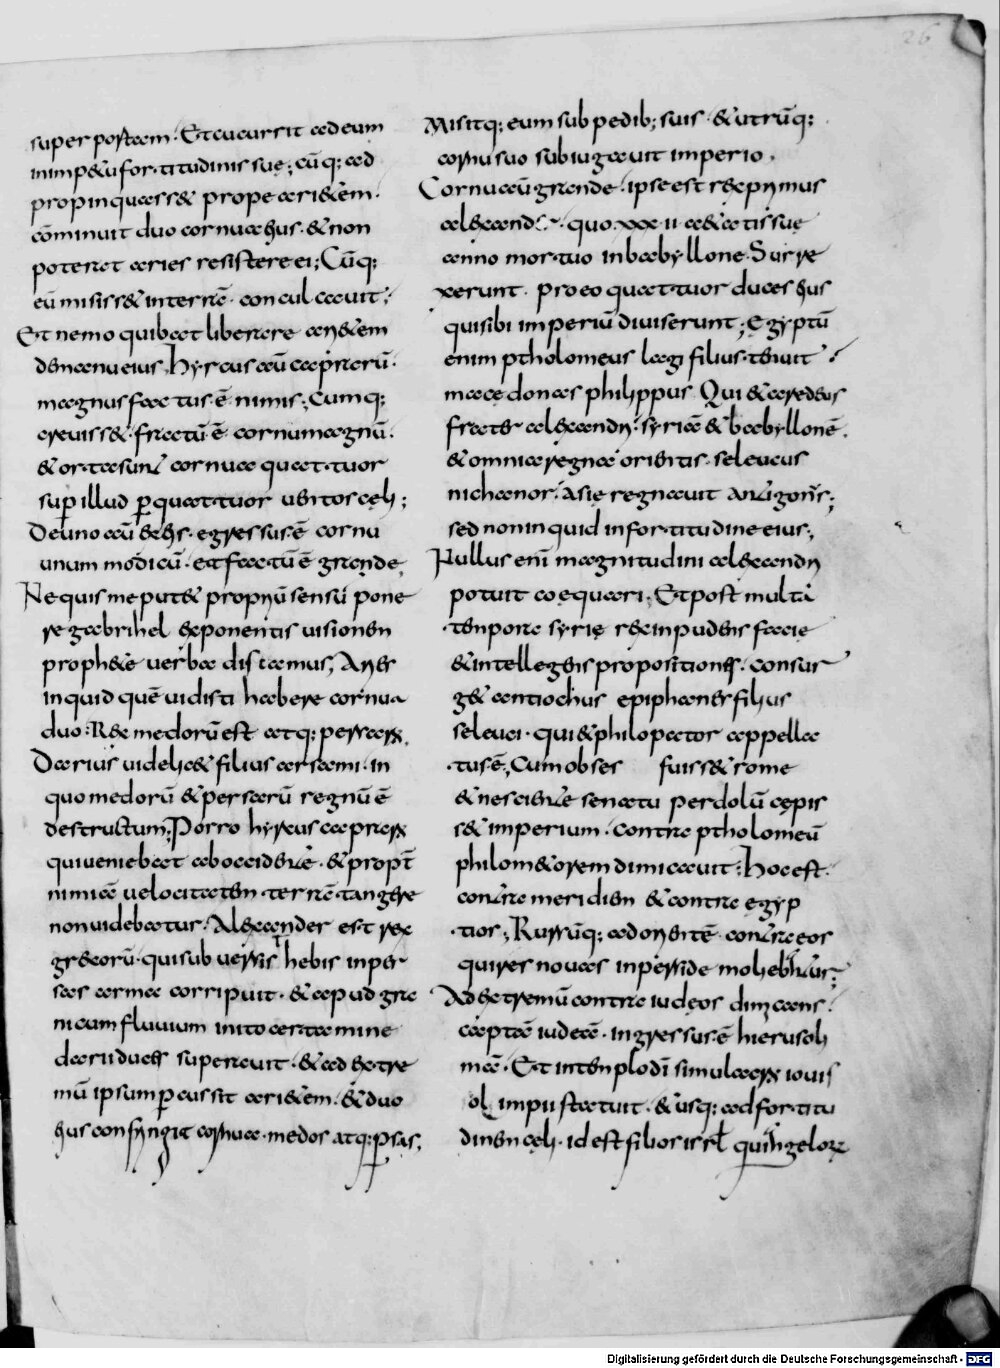 26
super postem · Et cucurrit ad eum
in imp&u fortitudinis suę ; cūq; ad
propinquass& prope ari&em ·
cōminuit duo cornua ei;us · & non
poterat aries resistere ei ; Cūq;
eū misiss& in terrā · conculcauit ;
Et nemo quibat liberare ari&em
de manu eius · Hyrcus aū caprarū ·
magnus factus ē nimis ; Cumq;
creuiss& · fractū ē cornu magnū ·
& orta sunt cornua quattuor
sup illud p quattuor uentos cęli ;
De uno aū ex his · egressus ē cornu
unum modicū · et factū ē grande ;
Ne quis me put& propriū sensū pone
re gabrihel exponentis uisionem
proph&e uerba discamus ; Aries
inquid quē uidisti habere cornua
duo · Rex medorū est atq; persarx ·
Darius uidelic& filius arsami · in
quo medorū & persarū regnū ē
destructum ; Porro hyrcus caprarx
qui ueniebat ab occidente · & propt
nimiā uelocitatem terrā tangere
non uidebatur · Alexander est rex
grecorū · qui subuersis thebis in per
sas arma corripuit · & apud gra
nicum fluuium inito certamine
darii duces superauit · & ad extre
mū ipsum pcussit ari&em · & duo
eius confringit cornua · medos atq; psas ;
Misitq; eum sub pedib; suis · & utrūq;
cornu suo subiugauit imperio ·
Cornu aū grande · ipse est rex primus
alexander · quo xxx ii a&atis suę
anno mortuo in babyllone · Surre
xerunt pro eo quattuor duces eius
qui sibi imperiū diuiserunt ; Egyptū
enim ptholomeus lagi filius tenuit
macedonas philippus Qui & aredeus
frater alexandri · syriā & babyllonē
& omnia regna orientis · seleucus
nichanor · asię regnauit antigonus ;
sed non inquid in fortitudine eius ;
Nullus enī magnitudini alexandri
potuit coequari · Et post multa
tempora syrię rex inpudens facie
& intellegens propositiones · consur
g& antiochus epiphanes filius
seleuci · qui & philopator appella
tus ē ; Cum obses fuiss& rome
& nesciente senatu per dolū cępis
s& imperium · contra ptholomeū
philom&orem dimicauit · Hoc est
contra meridiem & contra egyp
tios ; Rursūq; ad orientē · contra eos
qui res nouas in perside moliebantur ;
Ad extremū contra iudeos dimicans ·
capta iudea · ingressus ē hierusoli
mā · Et in templo dī simulacrx iouis
oli impii statuit · & usq; ad fortitu
dinem cęli · id est filios isrl qui angelorx